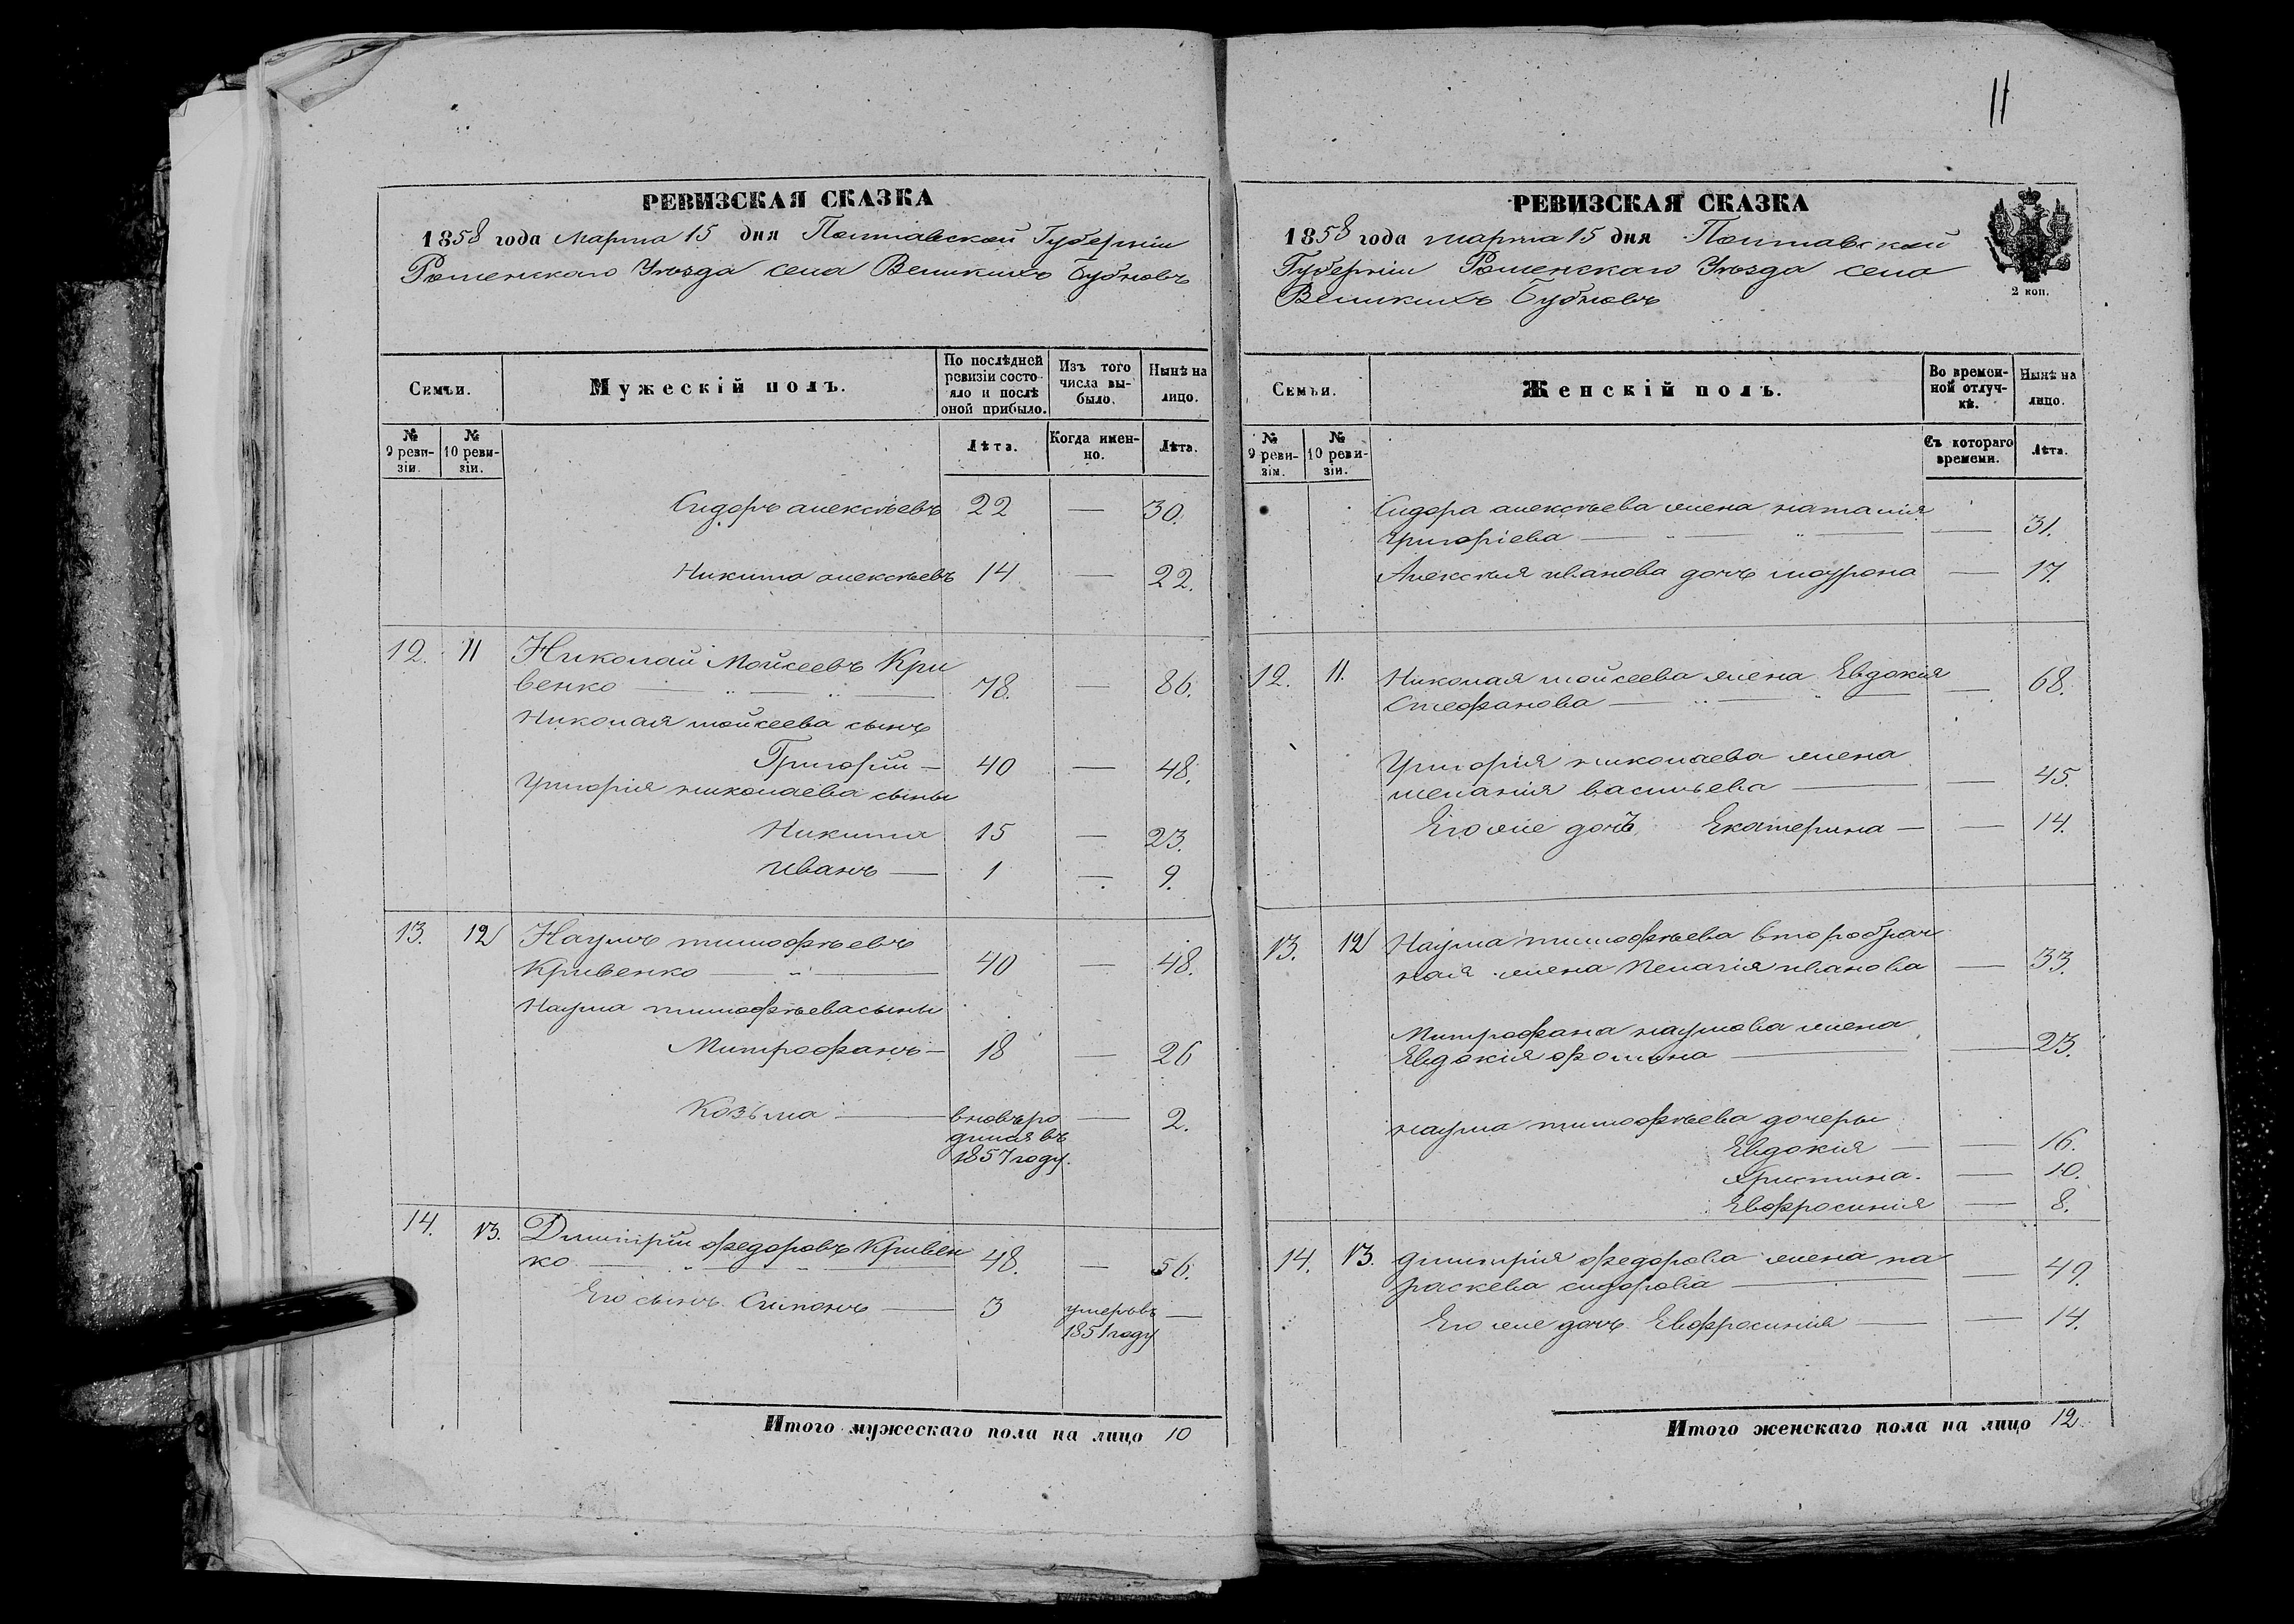 11
РЕВИЗСКАЯ СКАЗКА
1858 года марта 15 дня Полтавской Губерніи
Роменскаго Уѣзда села Великихъ Бубновъ
Семьи.
Мужескій полъ.
По послѣдней ревизіи состояло и послѣ оной прибыло.
Изъ того числа выбыло.
Нынѣ на лицо.
№ 9 ревизіи.
№ 10 ревизіи.
Лѣта.
Когда именно.
Лѣта.
Сидоръ алексѣевъ 22 — 30.
Никита алексѣевъ 14 — 22.
12. 11 Николай Мойсеевъ Кри
венко — 78. — 86.
Николая мойсеева сынъ
Григорій — 40 — 48.
Григорія николаева сыны
Никита 15 — 23.
Иванъ — 1 — 9.
13. 12 Наумъ тимофѣевъ
Кривенко — 40 — 48.
Наума тимофѣева сыны
Митрофанъ — 18 — 26
Козьма — вновь ро — 2.
дился въ
1857 году.
14. 13. Димитрій федоровъ Кривен
ко 48. — 56.
Его сынъ Симонъ — 3 умеръ въ —
1851 году
Итого мужескаго пола на лицо 10
РЕВИЗСКАЯ СКАЗКА
1858 года марта 15 дня Полтавской
Губерніи Роменскаго Уѣзда села
Великихъ Бубновъ
2 коп.
Семьи.
Женскій полъ.
Во временной отлучкѣ.
Нынѣ на лицо.
№ 9 ревизіи.
№ 10 ревизіи.
Съ котораго времени.
Лѣта.
Сидора алексѣева жена наталія
Григоріева — — 31.
Алексѣя иванова дочь — 17.
12. 11. Николая мойсеева жена Евдокія
Стефанова — — 68.
Григорія николаева жена
меланія васильева — — 45.
Его же дочь Екатерина — — 14.
13. 12 Наума тимофѣева второбрач
ная жена Пелагія иванова — 33.
Митрофана наумова жена
Евдокія фомина — — 23.
наума тимофѣева дочеры
Евдокія — — 16.
Христина. — 10.
Евфросинія — 8.
14. 13. димитрія федорова жена па
раскева сидорова — — 49.
Его же дочь Евфросинія — — 14.
Итого женскаго пола на лицо 12